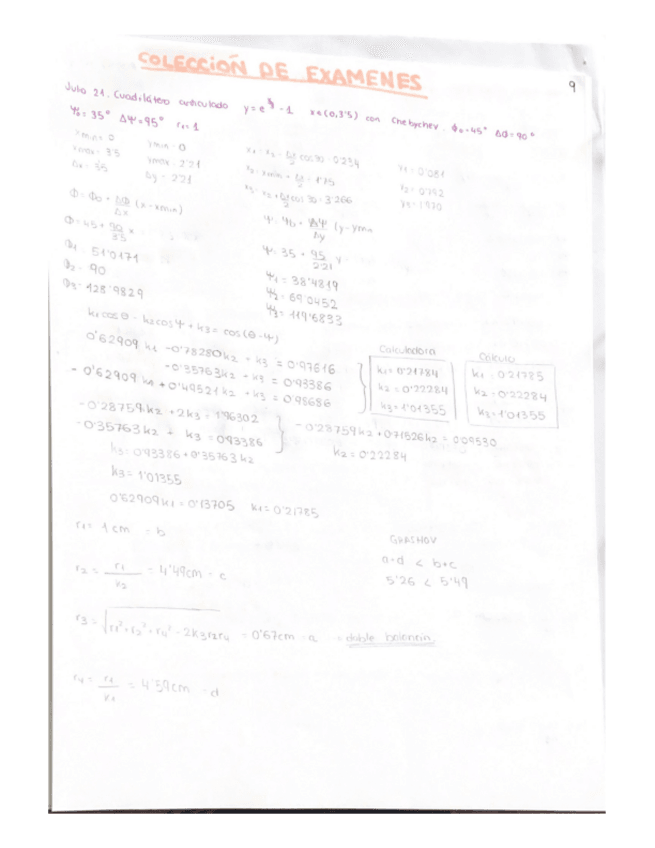 COLECCIÓN DE EXAMENES
9
Julio 21. Cuadrilátero articulado y = e^(x/3) - 1 x∈(0,3'5) con Chebychev. Φ₀=45° ΔΦ=90°
Ψ₀=35° ΔΨ=95° r₁=1
xmin=0 ymin=0
xmax=3'5 ymax=2'21
Δx=3'5 Δy=2'21
x₁ = x₂ - Δx/2 cos 30 = 0'234 y₁ = 0'081
x₂ = xmin + Δx/2 = 1'75 y₂ = 0'792
x₃ = x₂ + Δx/2 cos 30 = 3'266 y₃ = 1'970
Φ = Φ₀ + ΔΦ/Δx (x - xmin) Ψ = Ψ₀ + ΔΨ/Δy (y - ymin
Φ = 45 + 90/3'5 x Ψ = 35 + 95/2'21 y
Φ₁ = 51'0171 Ψ₁ = 38'4819
Φ₂ = 90 Ψ₂ = 69'0452
Φ₃ = 128'9829 Ψ₃ = 119'6833
k₁cosθ - k₂cosΨ + k₃ = cos(θ-Ψ)
0'62909 k₁ - 0'78280 k₂ + k₃ = 0'97616
-0'35763 k₂ + k₃ = 0'93386
-0'62909 k₁ + 0'49521 k₂ + k₃ = 0'98686
Calculadora
k₁ = 0'21784
k₂ = 0'22284
k₃ = 1'01355
Cálculo
k₁ = 0'21785
k₂ = 0'22284
k₃ = 1'01355
-0'28759 k₂ + 2k₃ = 1'96302
-0'35763 k₂ + k₃ = 0'93386
-0'28759 k₂ + 0'71526 k₂ = 0'09530
k₂ = 0'22284
k₃ = 0'93386 + 0'35763 k₂
k₃ = 1'01355
0'62909 k₁ = 0'13705 k₁ = 0'21785
r₁ = 1 cm = b
r₂ = r₁/k₂ = 4'49 cm = c
r₃ = √(r₁² + r₂² + r₄² - 2k₃r₂r₄) = 0'67 cm = a = doble balancín
r₄ = r₁/k₁ = 4'59 cm = d
GRASHOV
a+d < b+c
5'26 < 5'49